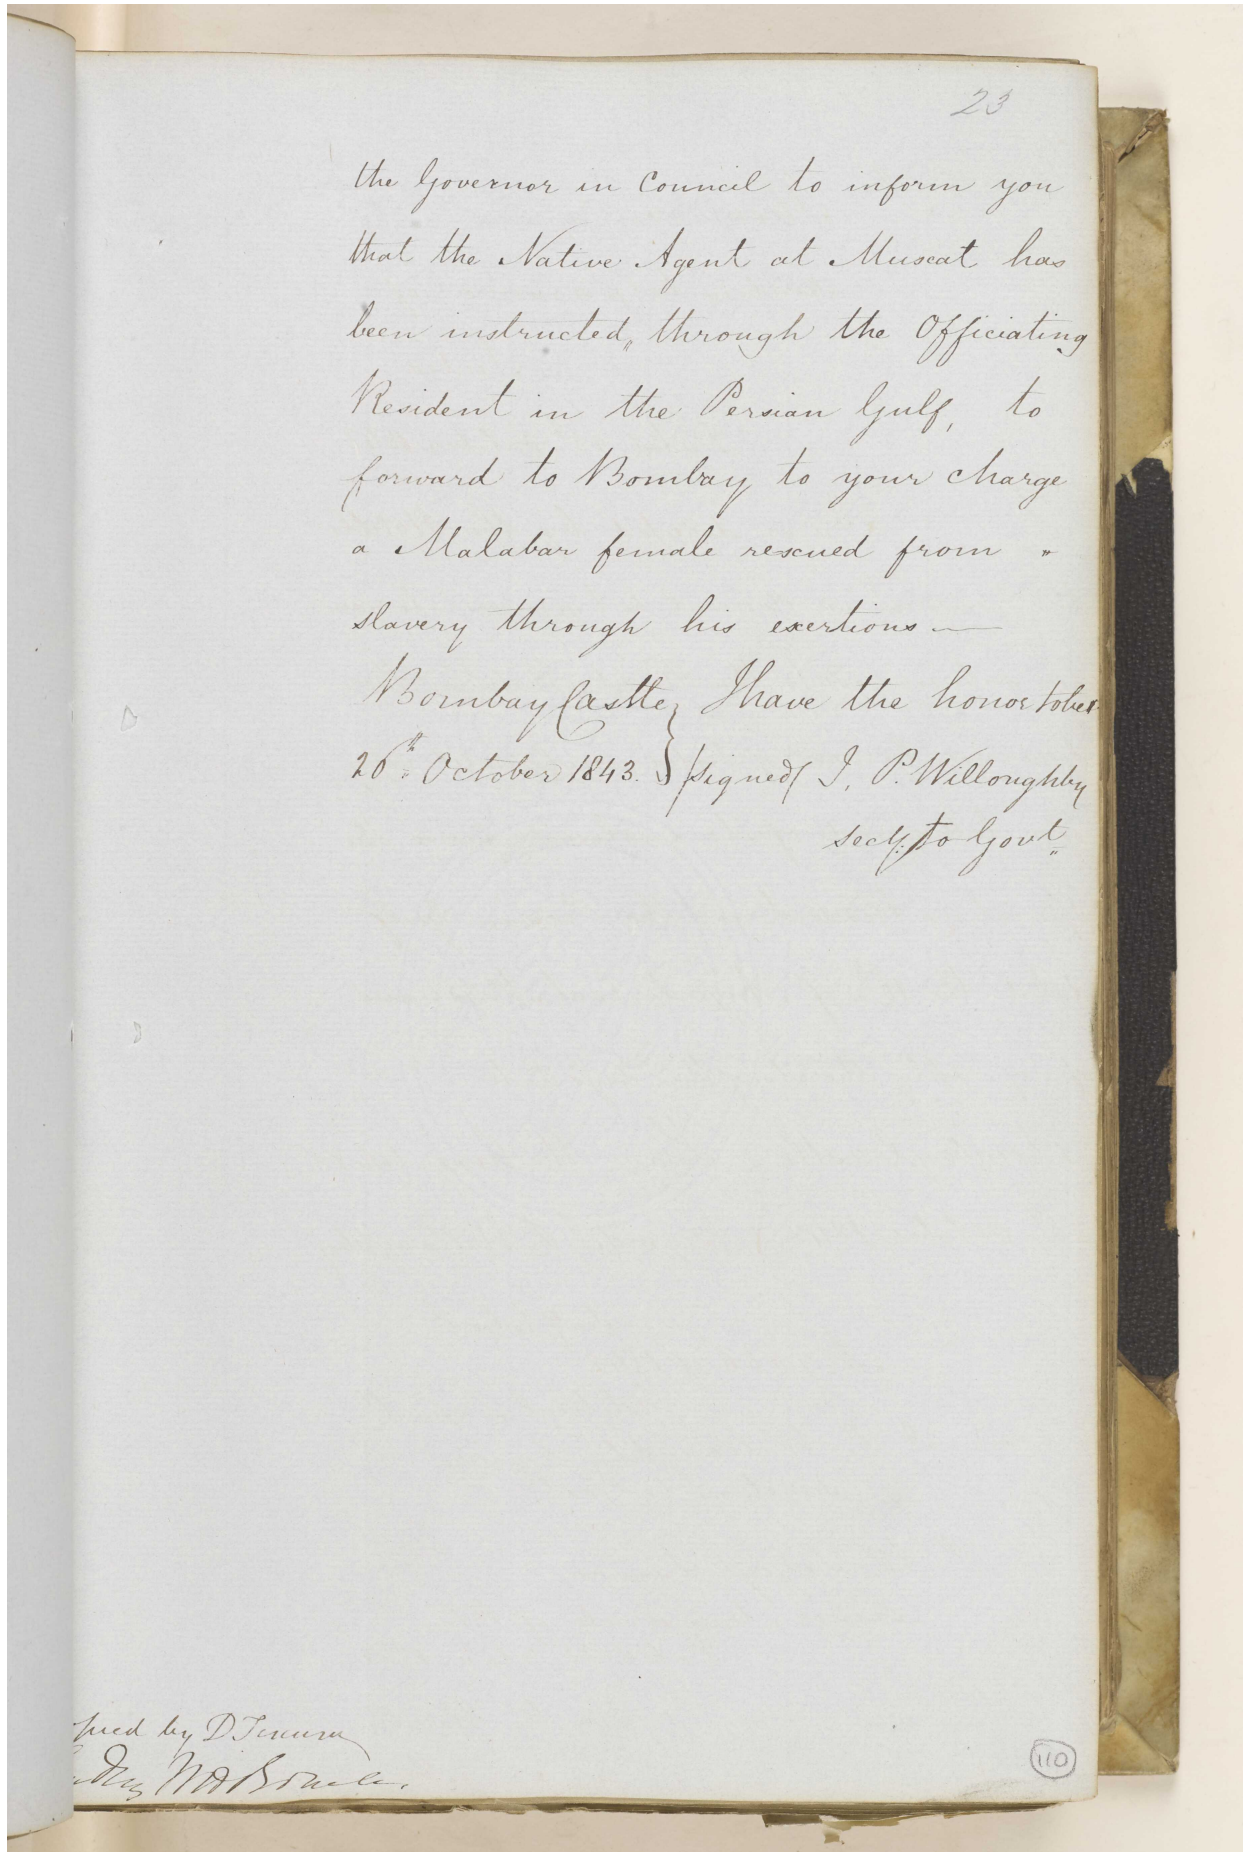 23
the Governor in Council to inform you
that the Native Agent at Muscat has
been instructed, through the Officiating
Resident in the Persian Gulf, to
forward to Bombay to your charge
a Malabar female rescued from "
slavery through his exertions —
Bombay Castle } I have the honor to be &
26th October 1843. } /signed/ J. P. Willoughby
Secy: to Govt
by D
110